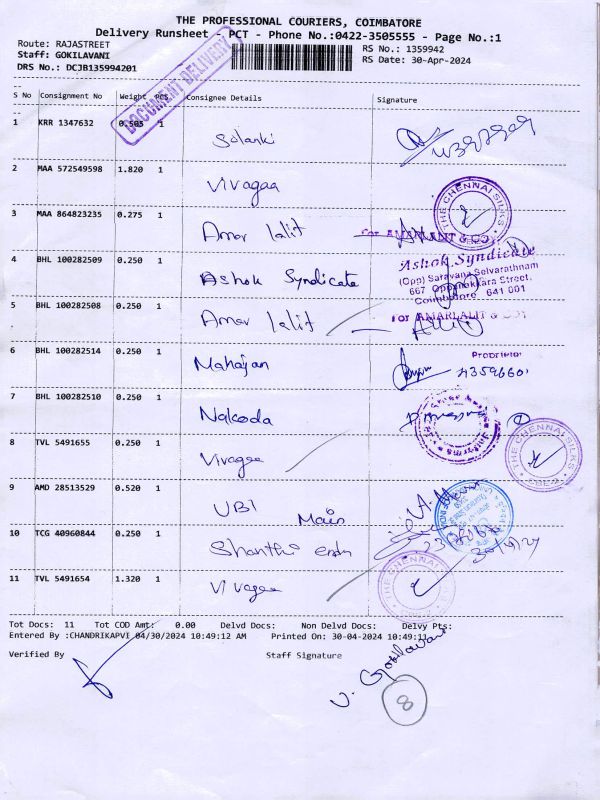 THE PROFESSIONAL COURIERS, COIMBATORE
Delivery Runsheet - PCT - Phone No.:0422-3505555 - Page No.:1
Route: RAJASTREET
RS No.: 1359942
Staff: GOKILAVANI
RS Date: 30-Apr-2024
DRS No.: DCJB135994201
DOCUMENT DELIVERY
S No Consignment No Weight PCS Consignee Details Signature
1 KRR 1347632 0.505 1 Solanki
2 MAA 572549598 1.820 1 Vivagaa
THE CHENNAI SILKS
CBE-1
3 MAA 864823235 0.275 1 Amar lalit
For AMARLALIT & CO
4 BHL 100282509 0.250 1 Ashok Syndicate
Ashok Syndicate
(Opp) Saravana Selvarathnam
667 Oppanakkara Street,
Coimbatore 641 001
5 BHL 100282508 0.250 1 Amar lalit
For AMARLALIT & CO
Proprietor
6 BHL 100282514 0.250 1 Mahajan
7 BHL 100282510 0.250 1 Nalcoda
8 TVL 5491655 0.250 1 Vivagaa
THE CHENNAI SILKS
CBE-1
9 AMD 28513529 0.520 1 UBI Main
10 TCG 40960844 0.250 1 Shanthi
11 TVL 5491654 1.320 1 Vivagaa
THE CHENNAI
Tot Docs: 11 Tot COD Amt: 0.00 Delvd Docs: Non Delvd Docs: Delvy Pts:
Entered By :CHANDRIKAPVI 04/30/2024 10:49:12 AM Printed On: 30-04-2024 10:49:11
Verified By Staff Signature
V. Gokilavani
8